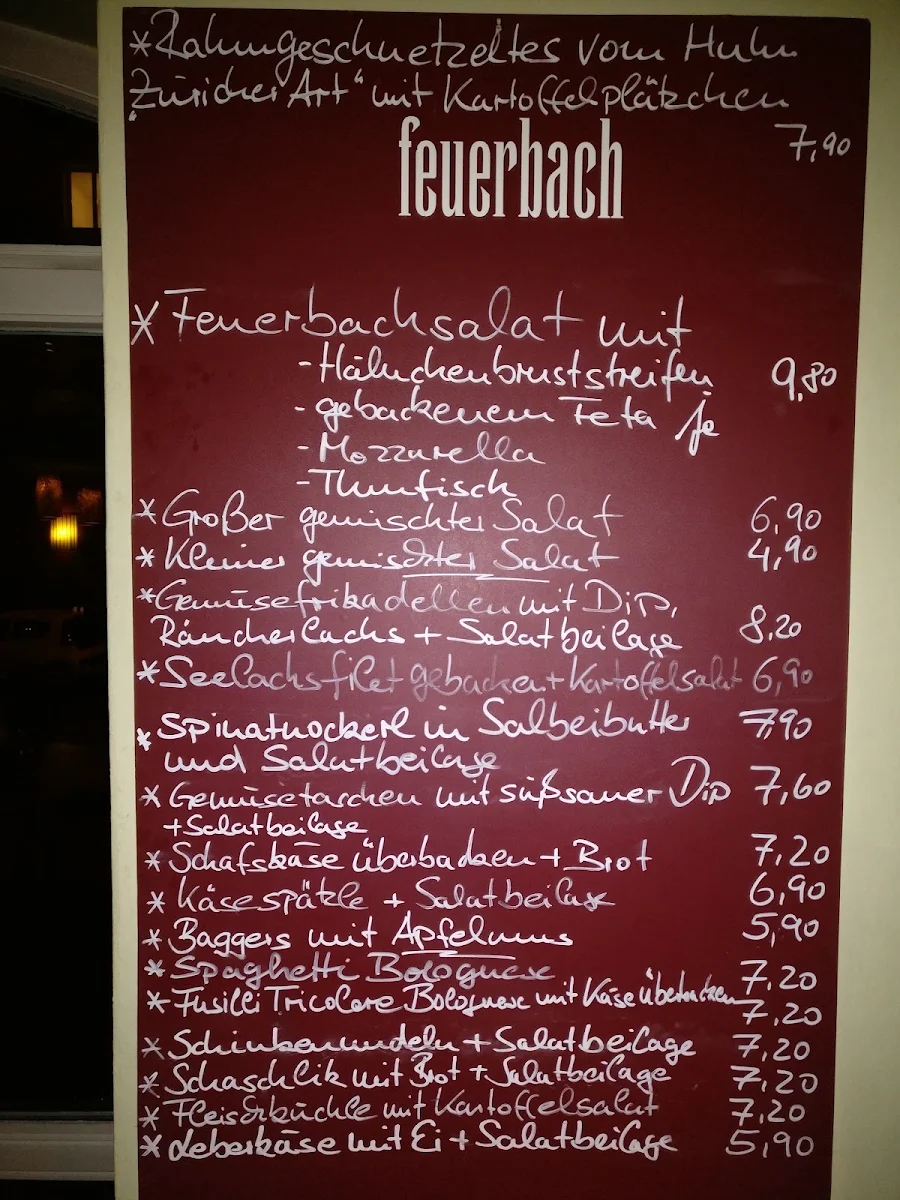 *Rahmgeschnetzeltes vom Huhn
„Züricher Art“ mit Kartoffelplätzchen
7,90
feuerbach
* Feuerbachsalat mit
- Hähnchenbruststreifen 9,80
- gebackenem Feta je
- Mozzarella
- Thunfisch
* Großer gemischter Salat 6,90
* Kleiner gemischter Salat 4,90
*Gemüsefrikadellen mit Dip,
Räucherlachs + Salatbeilage 8,20
* Seelachsfilet gebacken + Kartoffelsalat 6,90
* Spinatnockerl in Salbeibutter 7,90
und Salatbeilage
* Gemüsetaschen mit süßsauer Dip 7,60
+ Salatbeilage
* Schafskäse überbacken + Brot 7,20
* Käsespätzle + Salatbeilage 6,90
* Baggers mit Apfelmus 5,90
* Spaghetti Bolognese 7,20
* Fusilli Tricolore Bolognese mit Käse überbacken 7,20
* Schinkennudeln + Salatbeilage 7,20
* Schaschlik mit Brot + Salatbeilage 7,20
* Fleischküchle mit Kartoffelsalat 7,20
* Leberkäse mit Ei + Salatbeilage 5,90